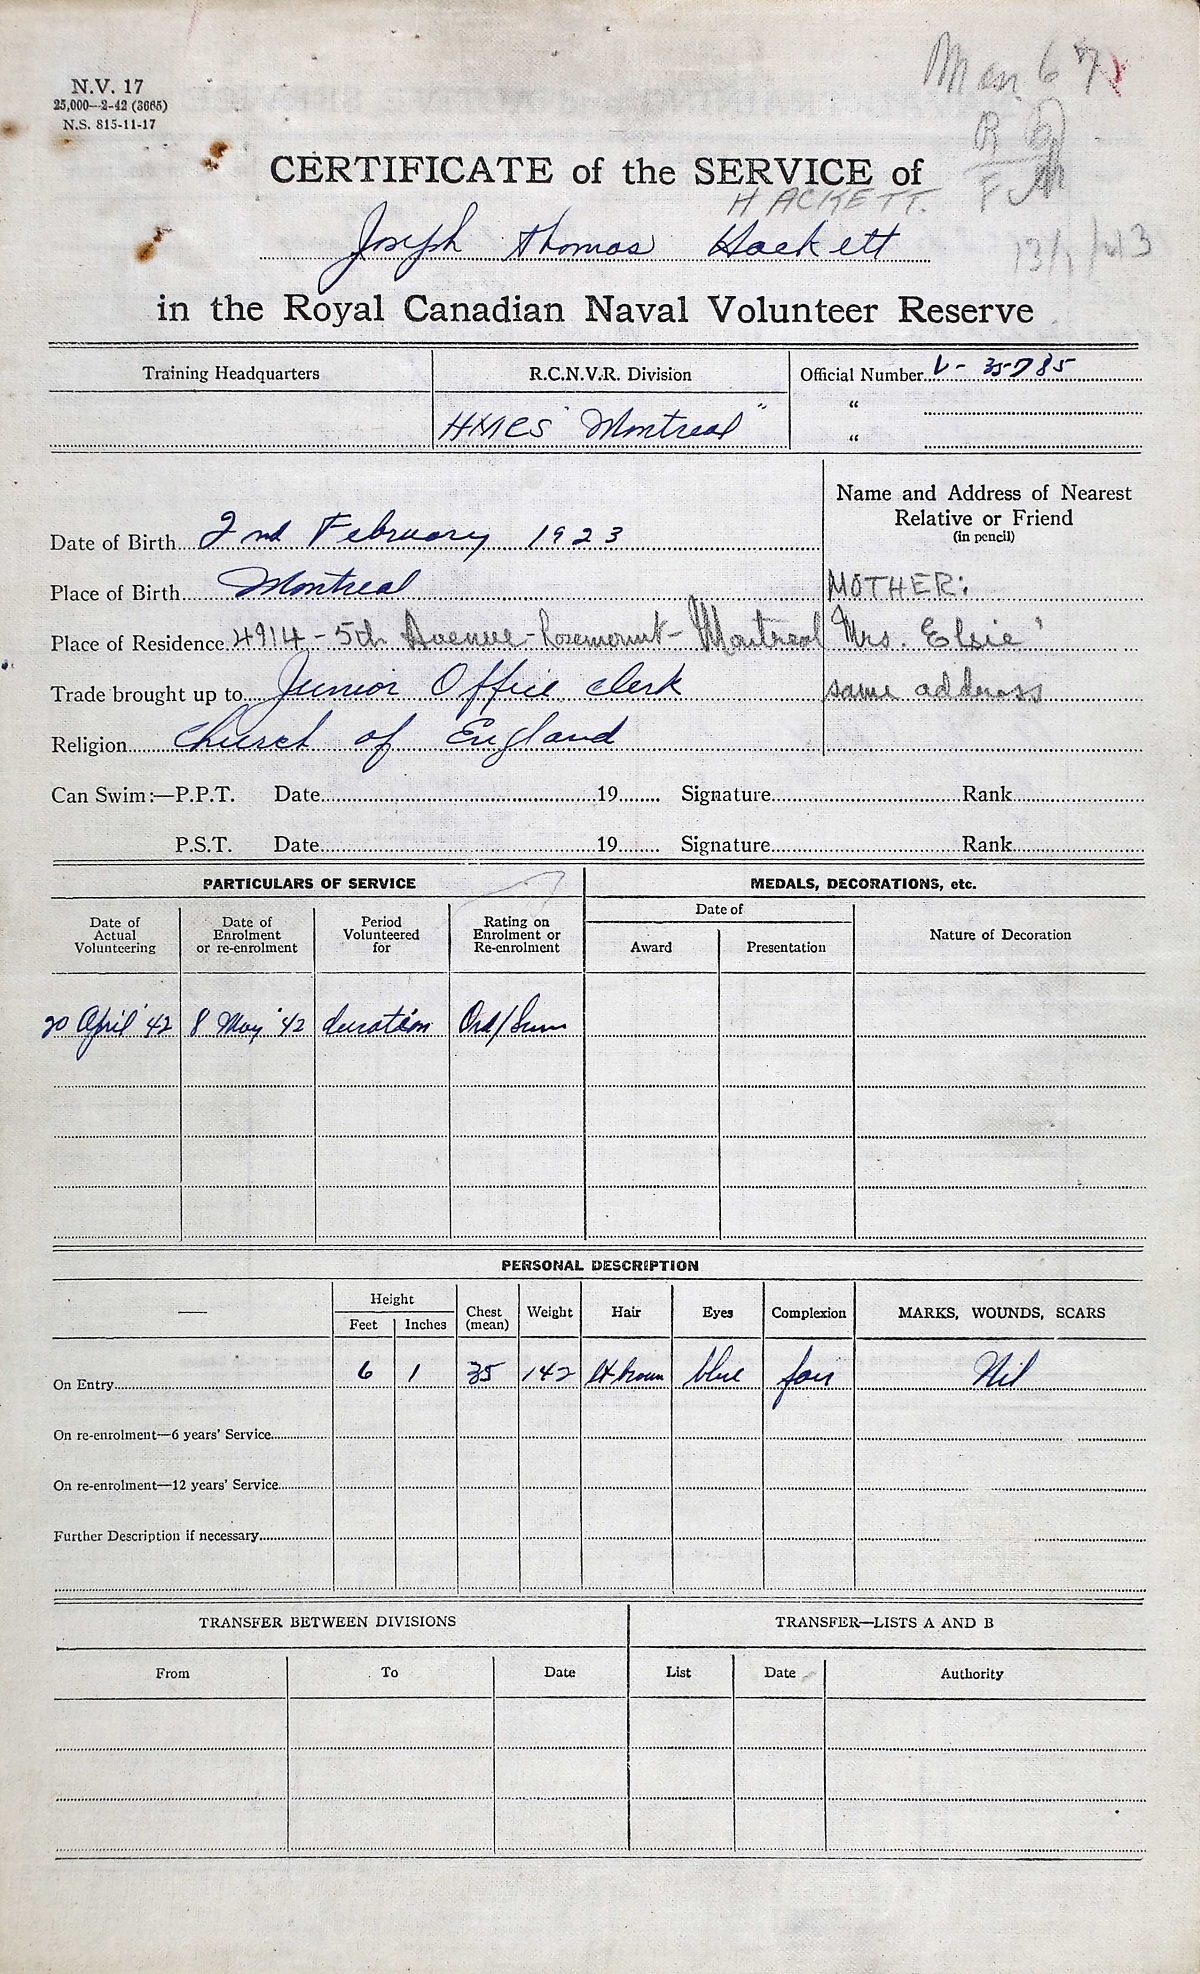 N.V. 17
25,000—2-42 (3665)
N.S. 815-11-17
Man 67
CERTIFICATE of the SERVICE of
HACKETT.
Joseph Thomas Hackett
13/1/43
in the Royal Canadian Naval Volunteer Reserve
Training Headquarters R.C.N.V.R. Division Official Number V-35785
"
HMCS "Montreal" "
Name and Address of Nearest
Relative or Friend
(in pencil)
Date of Birth 2nd February 1923
Place of Birth Montreal MOTHER:
Place of Residence 4914 - 5th Avenue - Rosemount - Montreal Mrs. Elsie
Trade brought up to Junior Office Clerk same address
Religion Church of England
Can Swim:—P.P.T. Date 19 Signature Rank
P.S.T. Date 19 Signature Rank
PARTICULARS OF SERVICE MEDALS, DECORATIONS, etc.
Date of Actual Volunteering Date of Enrolment or re-enrolment Period Volunteered for Rating on Enrolment or Re-enrolment Date of
Award Presentation Nature of Decoration
20 April '42 8 May '42 duration Ord/Smn
PERSONAL DESCRIPTION
— Height Chest (mean) Weight Hair Eyes Complexion MARKS, WOUNDS, SCARS
Feet Inches
On Entry 6 1 35 142 lt brown blue fair Nil
On re-enrolment—6 years' Service
On re-enrolment—12 years' Service
Further Description if necessary
TRANSFER BETWEEN DIVISIONS TRANSFER—LISTS A AND B
From To Date List Date Authority